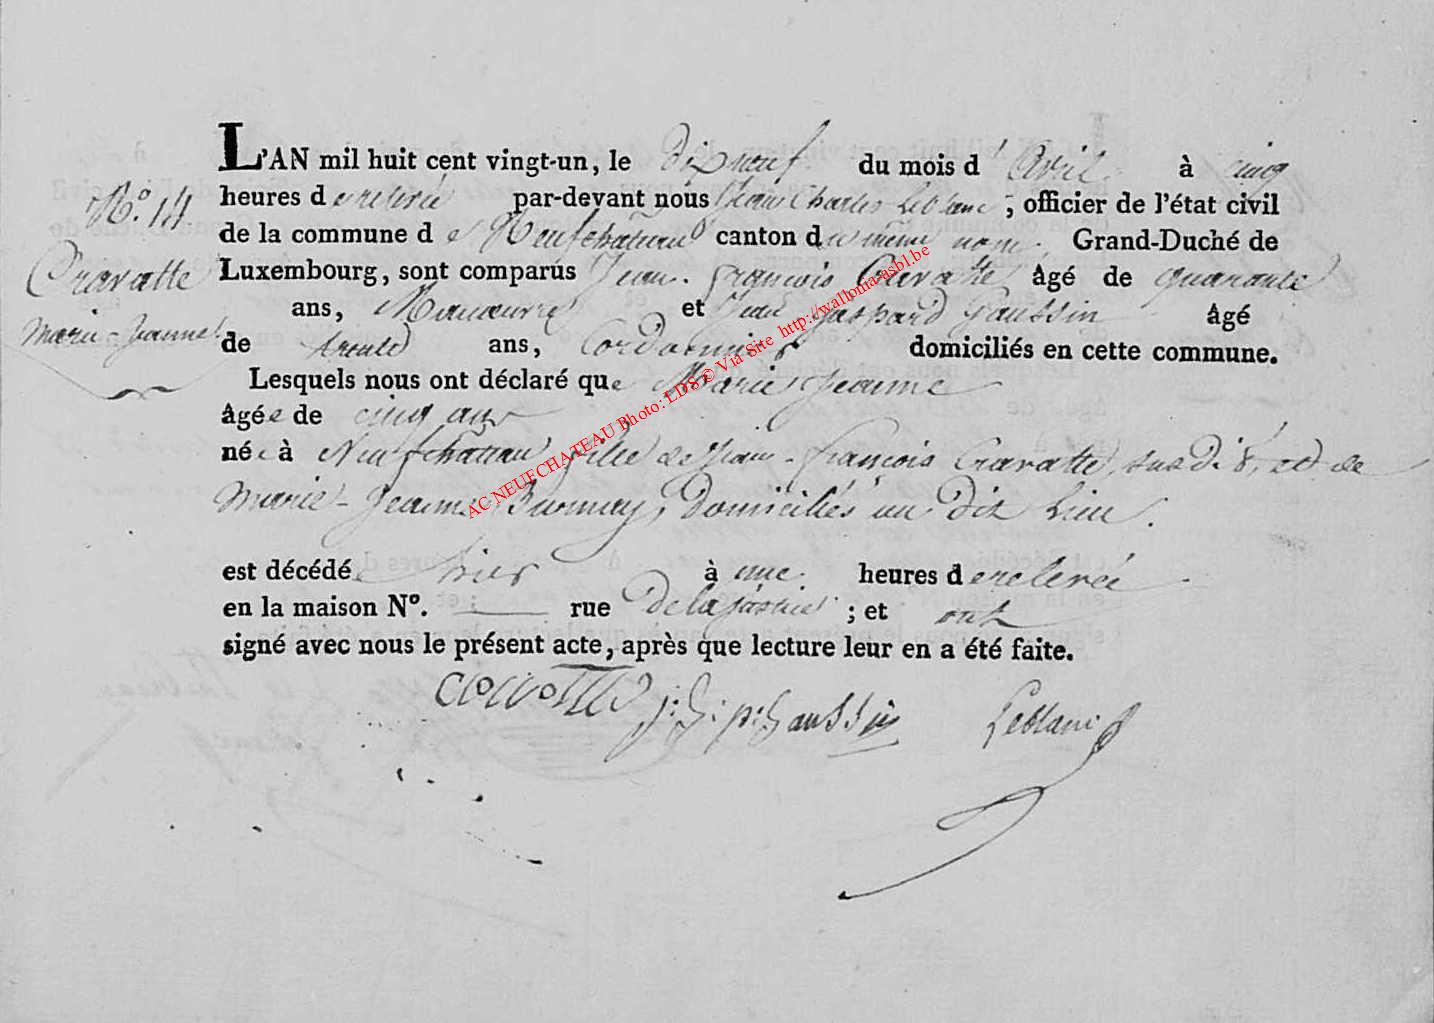 N.º 14
Cravatte
Marie-Jeanne
L'AN mil huit cent vingt-un, le dix neuf du mois d'Avril à cinq
heures de relevée par-devant nous Jean Charles Leblanc, officier de l'état civil
de la commune de Neufchateau canton du même nom. Grand-Duché de
Luxembourg, sont comparus Jean-françois Cravatte âgé de quarante
ans, Manœuvre et Jean gaspard Gaussin âgé
de trente ans, Cordonnier domiciliés en cette commune.
Lesquels nous ont déclaré que Marie Jeanne
âgée de cinq ans
née à Neufchateau fille de Jean-françois Cravatte, sus dit, et de
Marie-Jeanne Burnay, domiciliés au dit Lieu.
est décédée hier à une heures de relevée
en la maison N°. — rue de la justice ; et ont
signé avec nous le présent acte, après que lecture leur en a été faite.
j: g: p: gaussin Leblanc
AC NEUFCHATEAU Photo: LDS © Via Site http://wallonia-asbl.be